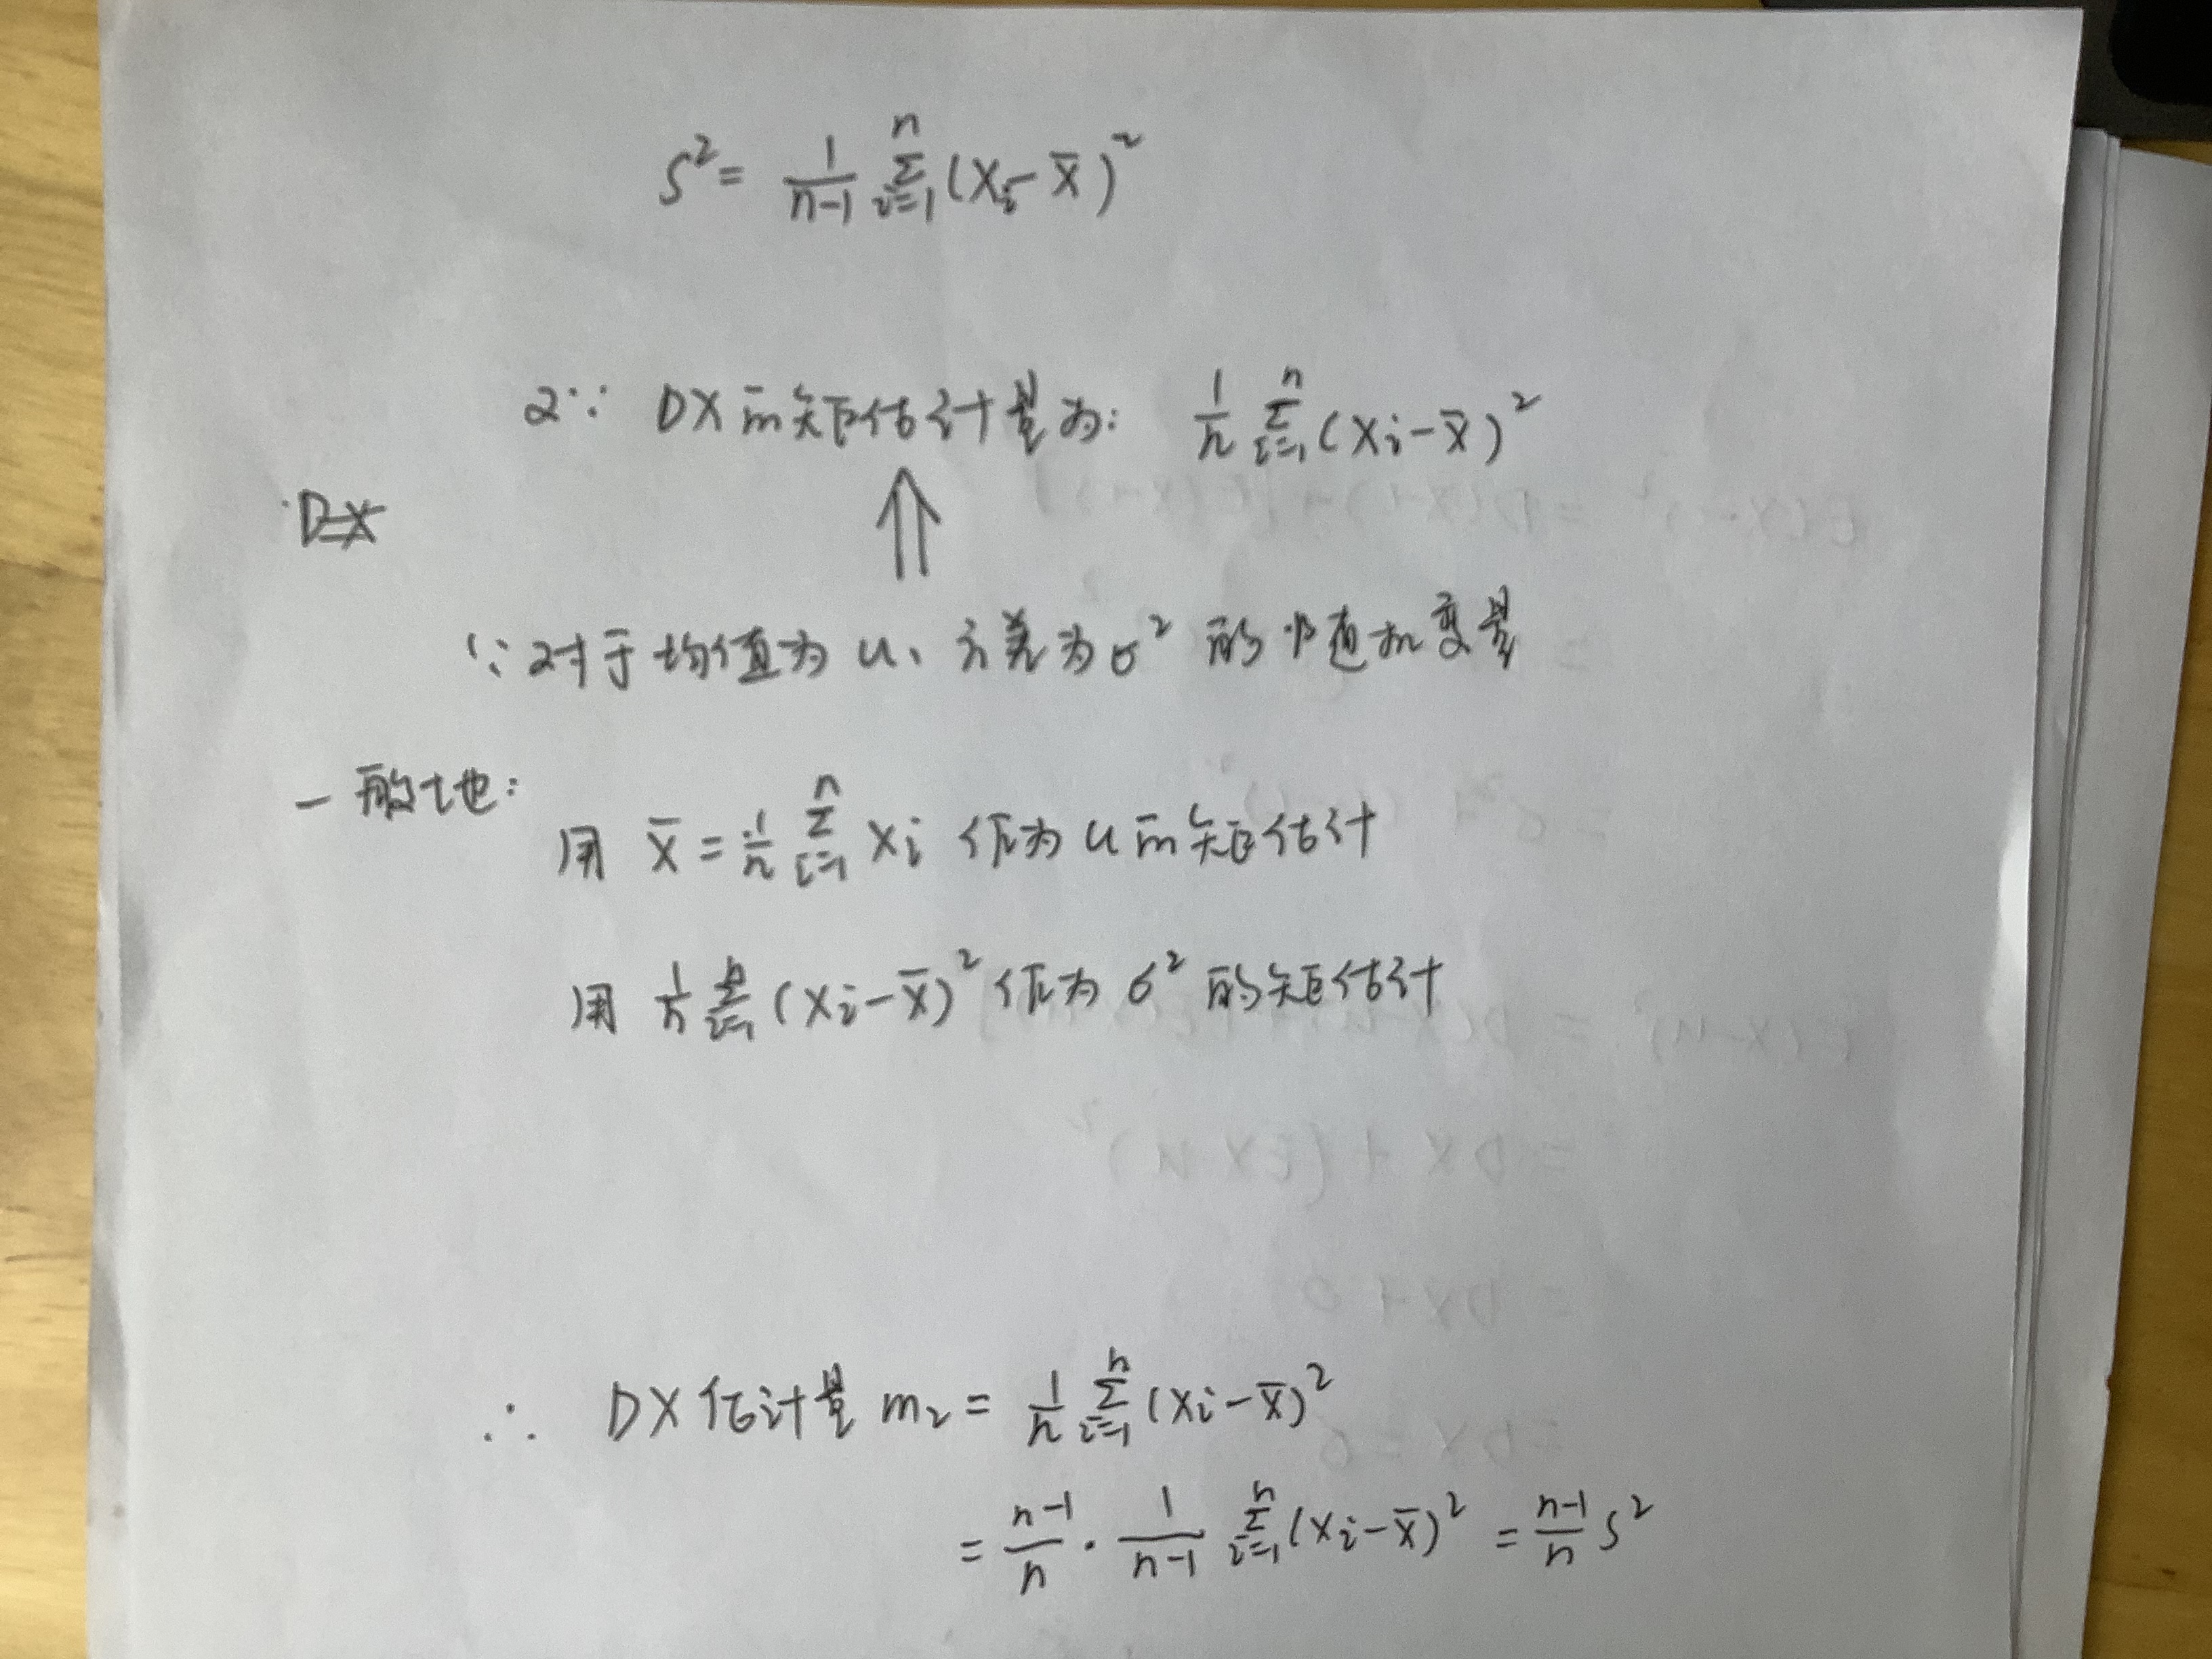 S² = \frac{1}{n-1} \sum_{i=1}^{n} (X_i - \bar{X})²
又∵ DX的矩估计量为: \frac{1}{n} \sum_{i=1}^{n} (X_i - \bar{X})²
⇑
∵对于均值为 u、方差为σ² 的随机变量
一般地:
用 \bar{X} = \frac{1}{n} \sum_{i=1}^{n} X_i 作为 u 的矩估计
用 \frac{1}{n} \sum_{i=1}^{n} (X_i - \bar{X})² 作为 σ² 的矩估计
∴ DX估计量 m₂ = \frac{1}{n} \sum_{i=1}^{n} (X_i - \bar{X})²
= \frac{n-1}{n} · \frac{1}{n-1} \sum_{i=1}^{n} (X_i - \bar{X})² = \frac{n-1}{n} S²